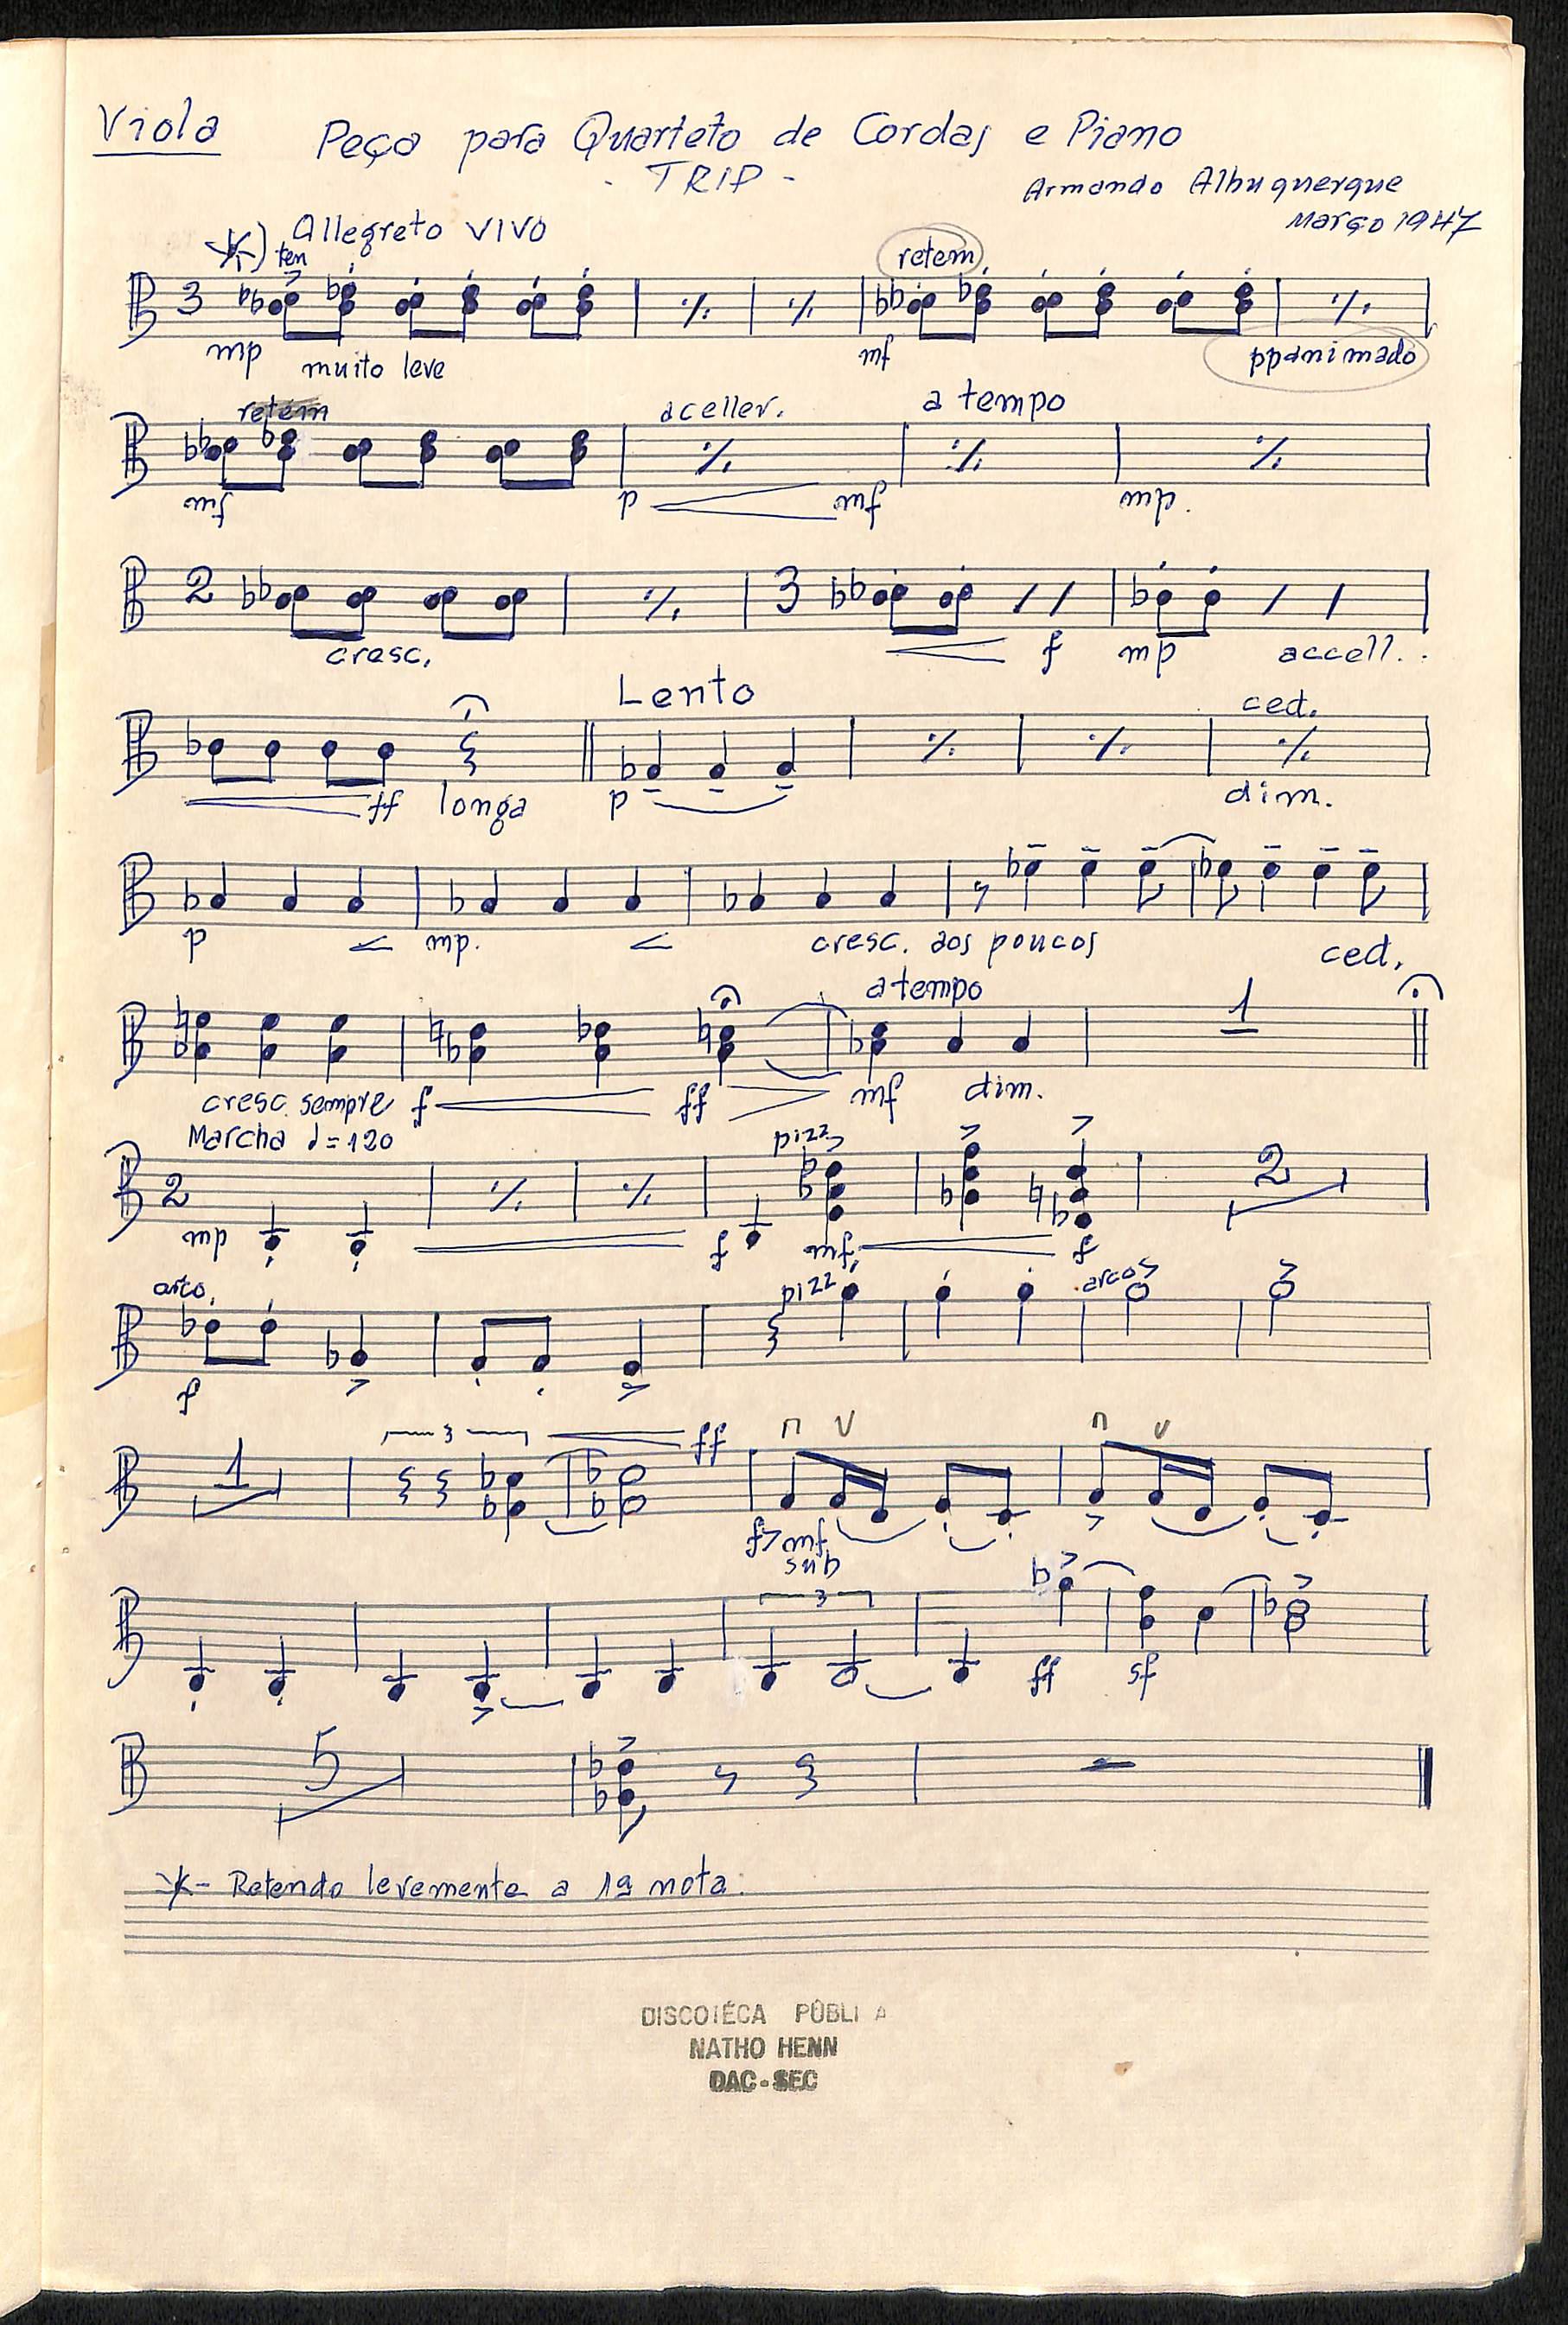 Viola Peça para Quarteto de Cordas e Piano
- TRIP -
Armando Albuquerque
Março 1947
*) ten Allegreto VIVO retem
3
mp muito leve mf ppanimado
retem aceller. a tempo
mf p mf mp.
2 3
cresc. f mp accell..
Lento ced.
ff longa p dim.
p mp. cresc. aos poucos ced.
a tempo 1
cresc. sempre f ff mf dim.
Marcha ♩=120 pizz
2 2
mp f mf f
arco pizz arco
f
1 3 ff
f>mf
sub
3
ff sf
5
*- Retendo levemente a 1ª nota.
DISCOTÉCA PÚBLI A
NATHO HENN
DAC-SEC